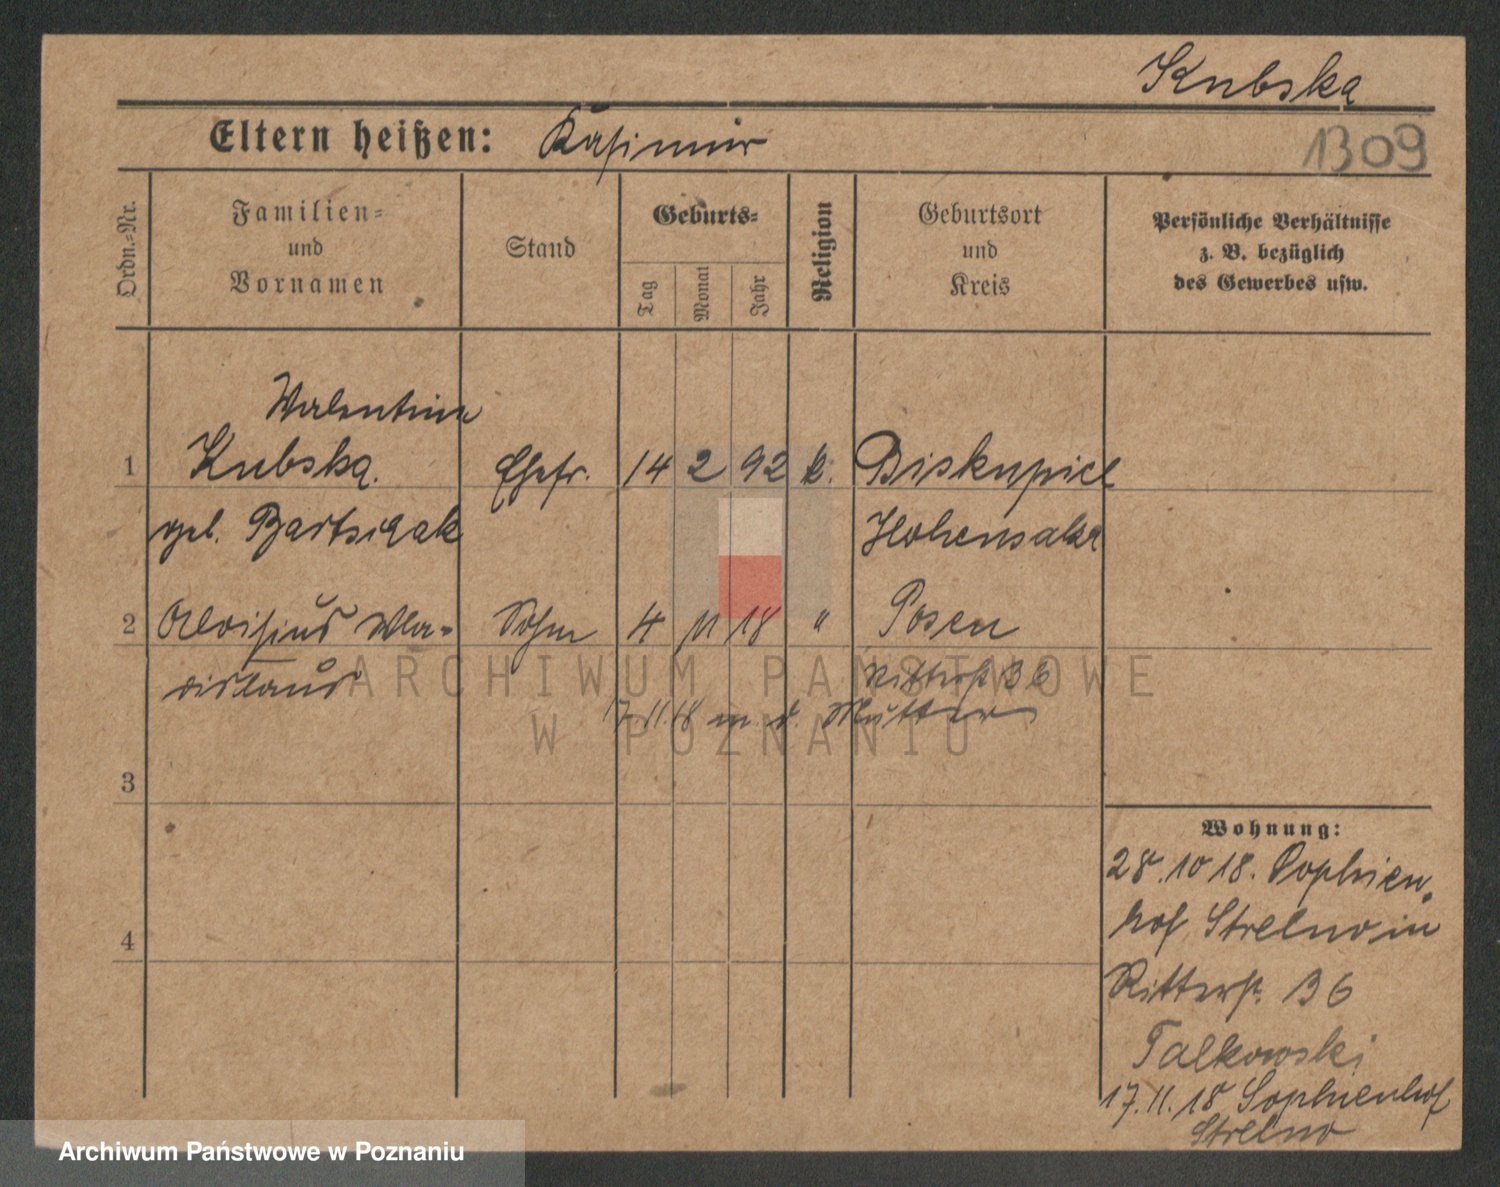 Kubska
Eltern heißen: Kasimir
1309
Ordn.-Nr.
Familien- und Vornamen
Stand
Geburts-
Tag
Monat
Jahr
Religion
Geburtsort und Kreis
Persönliche Verhältnisse
z. B. bezüglich
des Gewerbes usw.
Walentina
1 Kubska. Ehefr. 14 2 92 k. Biskupice
geb. Hohensalza
2 Aloisius Wla- Sohn 4 11 18 " Posen
dislaus Ritterst 36
17.11.18 m. d. Mutter
3
4
Wohnung:
28.10 18. Sophien-
hof Strelno in
Ritterst. 36
Talkowski
17.11.18 Sophienhof
Strelno
ARCHIWUM PAŃSTWOWE
W POZNANIU
Archiwum Państwowe w Poznaniu